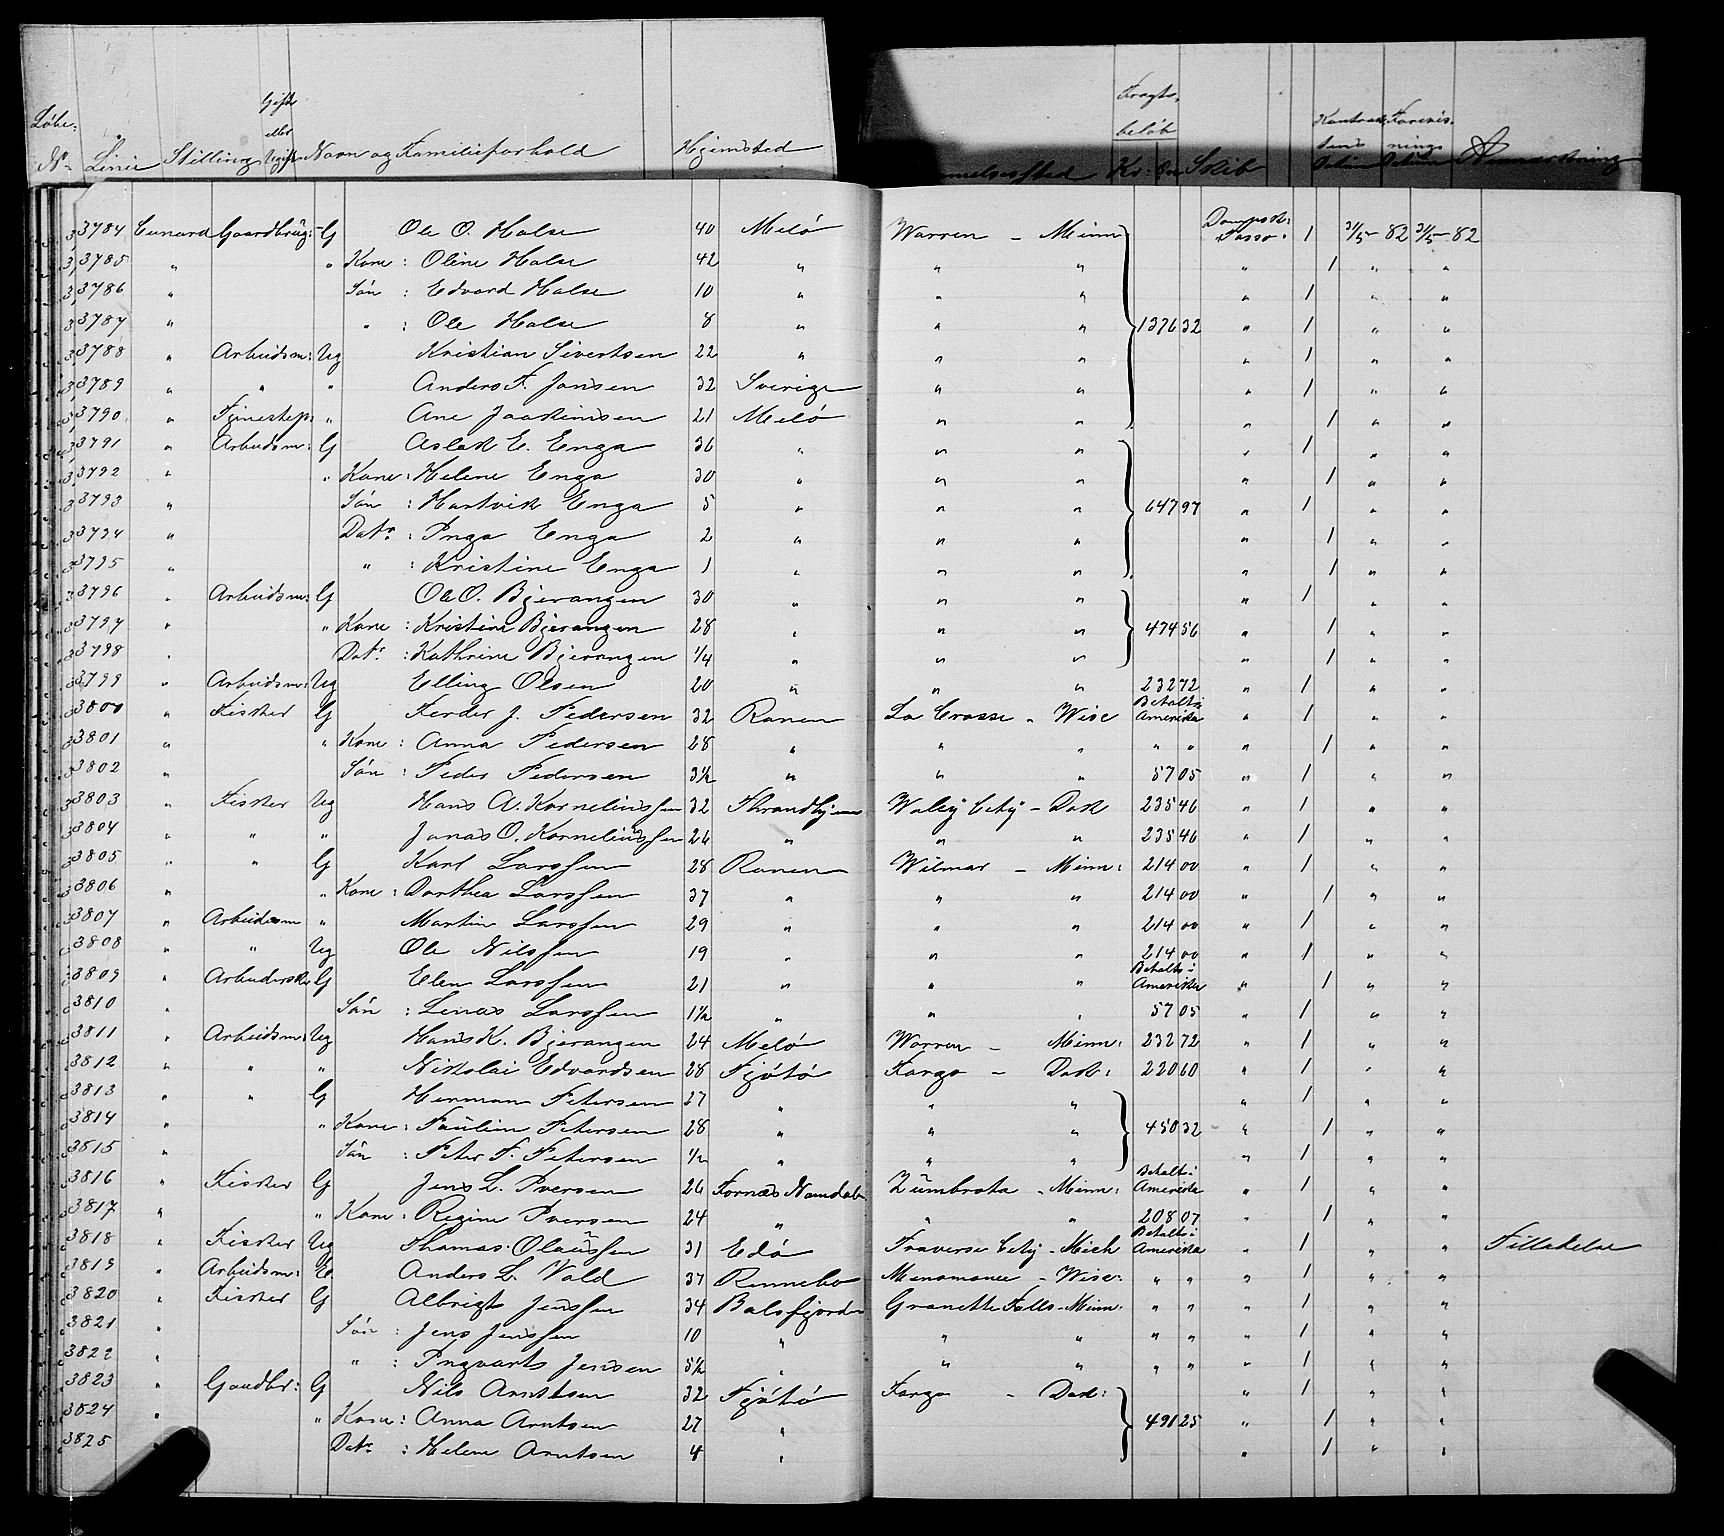 Löbe- N° Linie Stilling Gift eller Ugift Navn og Familieforhold Hjemsted Fragtbeløb Kr: Øre Skib Kontraktens Datum Datum Anmærkning
3784 Cunard Gaardbrug: G Ole O. Halse 40 Melö Warren - Minn Dampsk: Tasso 1 31/5 - 82 31/5 - 82
3785 " " Kone: Oline Halse 42 " " " " 1 " "
3786 " Sön: Edvard Halse 10 " " " " 1 " "
3787 " ": Ole Halse 8 " " " 1376 32 " 1 " "
3788 " Arbeidsm: Ug Kristian Sivertsen 22 " " " " 1 " "
3789 " " " Anders F. Jansen 32 Sverige " " " 1 " "
3790 " Tjenestep: " Ane Joakimsen 21 Melö " " " 1 " "
3791 " Arbeidsm: G Aslak E. Enga 36 " " " " 1 " "
3792 " " Kone: Helene Enga 30 " " " " 1 " "
3793 " Sön: Hartvik Enga 5 " " " 647 97 " 1 " "
3794 " Datr: Inga Enga 2 " " " " 1 " "
3795 " ": Kristine Enga 1 " " " " 1 " "
3796 " Arbeidsm: G Ole O. Bjerangen 30 " " " " 1 " "
3797 " " Kone: Kristine Bjerangen 28 " " " 474 56 " 1 " "
3798 " Datr: Kathrine Bjerangen 1/4 " " " " 1 " "
3799 " Arbeidsm: Ug Elling Olsen 20 " " " 232 72 " 1 " "
3800 " Fisker G Peder J. Pedersen 32 Ranen La Crosse - Wisc Betalt i Amerika " 1 " "
3801 " " Kone: Anna Pedersen 28 " " " " " " 1 " "
3802 " Sön: Peder Pedersen 3½ " " " 57 05 " 1 " "
3803 " Fisker Ug Hans A. Kornelinssen 32 Thrandhjem City - Dak 235 46 " 1 " "
3804 " " " Jonas O. Korneliussen 26 " " " 235 46 " 1 " "
3805 " " G Karl Larssen 28 Ranen Wilmar - Minn: 214 00 " 1 " "
3806 " " Kone: Dorthea Larssen 37 " " " 214 00 " 1 " "
3807 " Arbeidsm " Martin Larssen 29 " " " 214 00 " 1 " "
3808 " " Ug Ole Nilssen 19 " " " 214 00 " 1 " "
3809 " Arbeidersk G Elen Larssen 21 " " " Betalt i Amerika " 1 " "
3810 " Sön: Linas Larssen 1½ " " " 57 05 " 1 " "
3811 " Arbeidsm: Ug Hans K. Bjerangen 24 Melö Warren - Minn: 232 72 " 1 " "
3812 " " " Nikolai Edvardsen 28 Tjötö Fargo - Dak: 220 60 " 1 " "
3813 " " G Herman Petersen 27 " " " " 1 " "
3814 " " Kone: Pauline Petersen 28 " " " 450 32 " 1 " "
3815 " Sön: Peter P. Petersen ½ " " " " 1 " "
3816 " Fisker G Jens L. Iversen 26 Fornæs Namdal Zumbrota - Minn: Betalt i Amerika " 1 " "
3817 " " Kone: Regine Iversen 24 " " " 208 07 " 1 " "
3818 " Fisker Ug Thomas Olaussen 31 Edö Traverse City - Mich Betalt i Amerika " 1 " " Tilladelse
3819 " Arbeidsm: Anders L. Vold 37 Rennebo Menomonee - Wisc: " " " 1 " "
3820 " Fisker G Albrigt Jenssen 34 Balsfjorden Granette Falls - Minn: " " " 1 " "
3821 " Sön: Jens Jenssen 10 " " " " " " 1 " "
3822 " ": Ingvart Jensen 5½ " " " " " " 1 " "
3823 " Gaardbr: G Nils Arntsen 32 Tjötö Fargo - Dak: " 1 " "
3824 " " Kone: Anna Arntsen 27 " 491 25 " 1 " "
3825 " Datr: Helene Arntsen 4 " " 1 " "